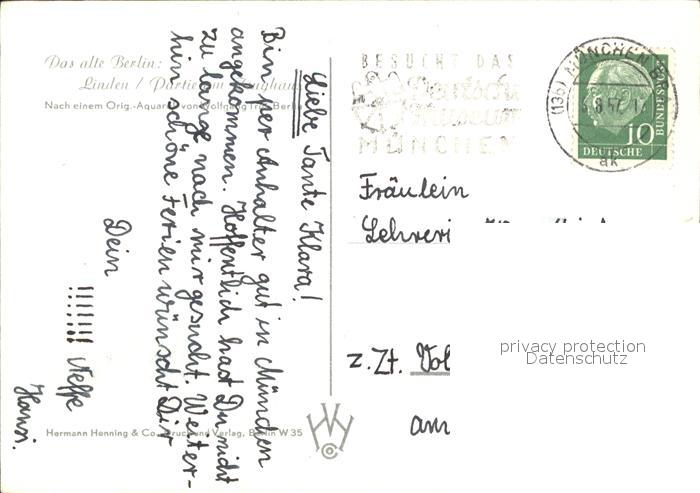 Das alte Berlin:
Linden / Partie am Zeughaus
Nach einem Orig.-Aquarell von Wolfgang Berlin
Liebe Tante Klara!
Bin per Anhalter gut in München
angekommen. Hoffentlich hast Du nicht
zu lange nach mir gesucht. Weiter-
hin schöne Ferien wünscht Dir
Dein
!!!!!!! Neffe
Hansi.
Hermann Henning & Co., Druck und Verlag, Berlin W 35
HWH
Co
BESUCHT DAS
Deutsche
Museum
MÜNCHEN
(13b) MÜNCHEN
57
ak
10
DEUTSCHE
BUNDESPOST
Fräulein
Lehreri
z. Zt. Vol
am
privacy protection
Datenschutz